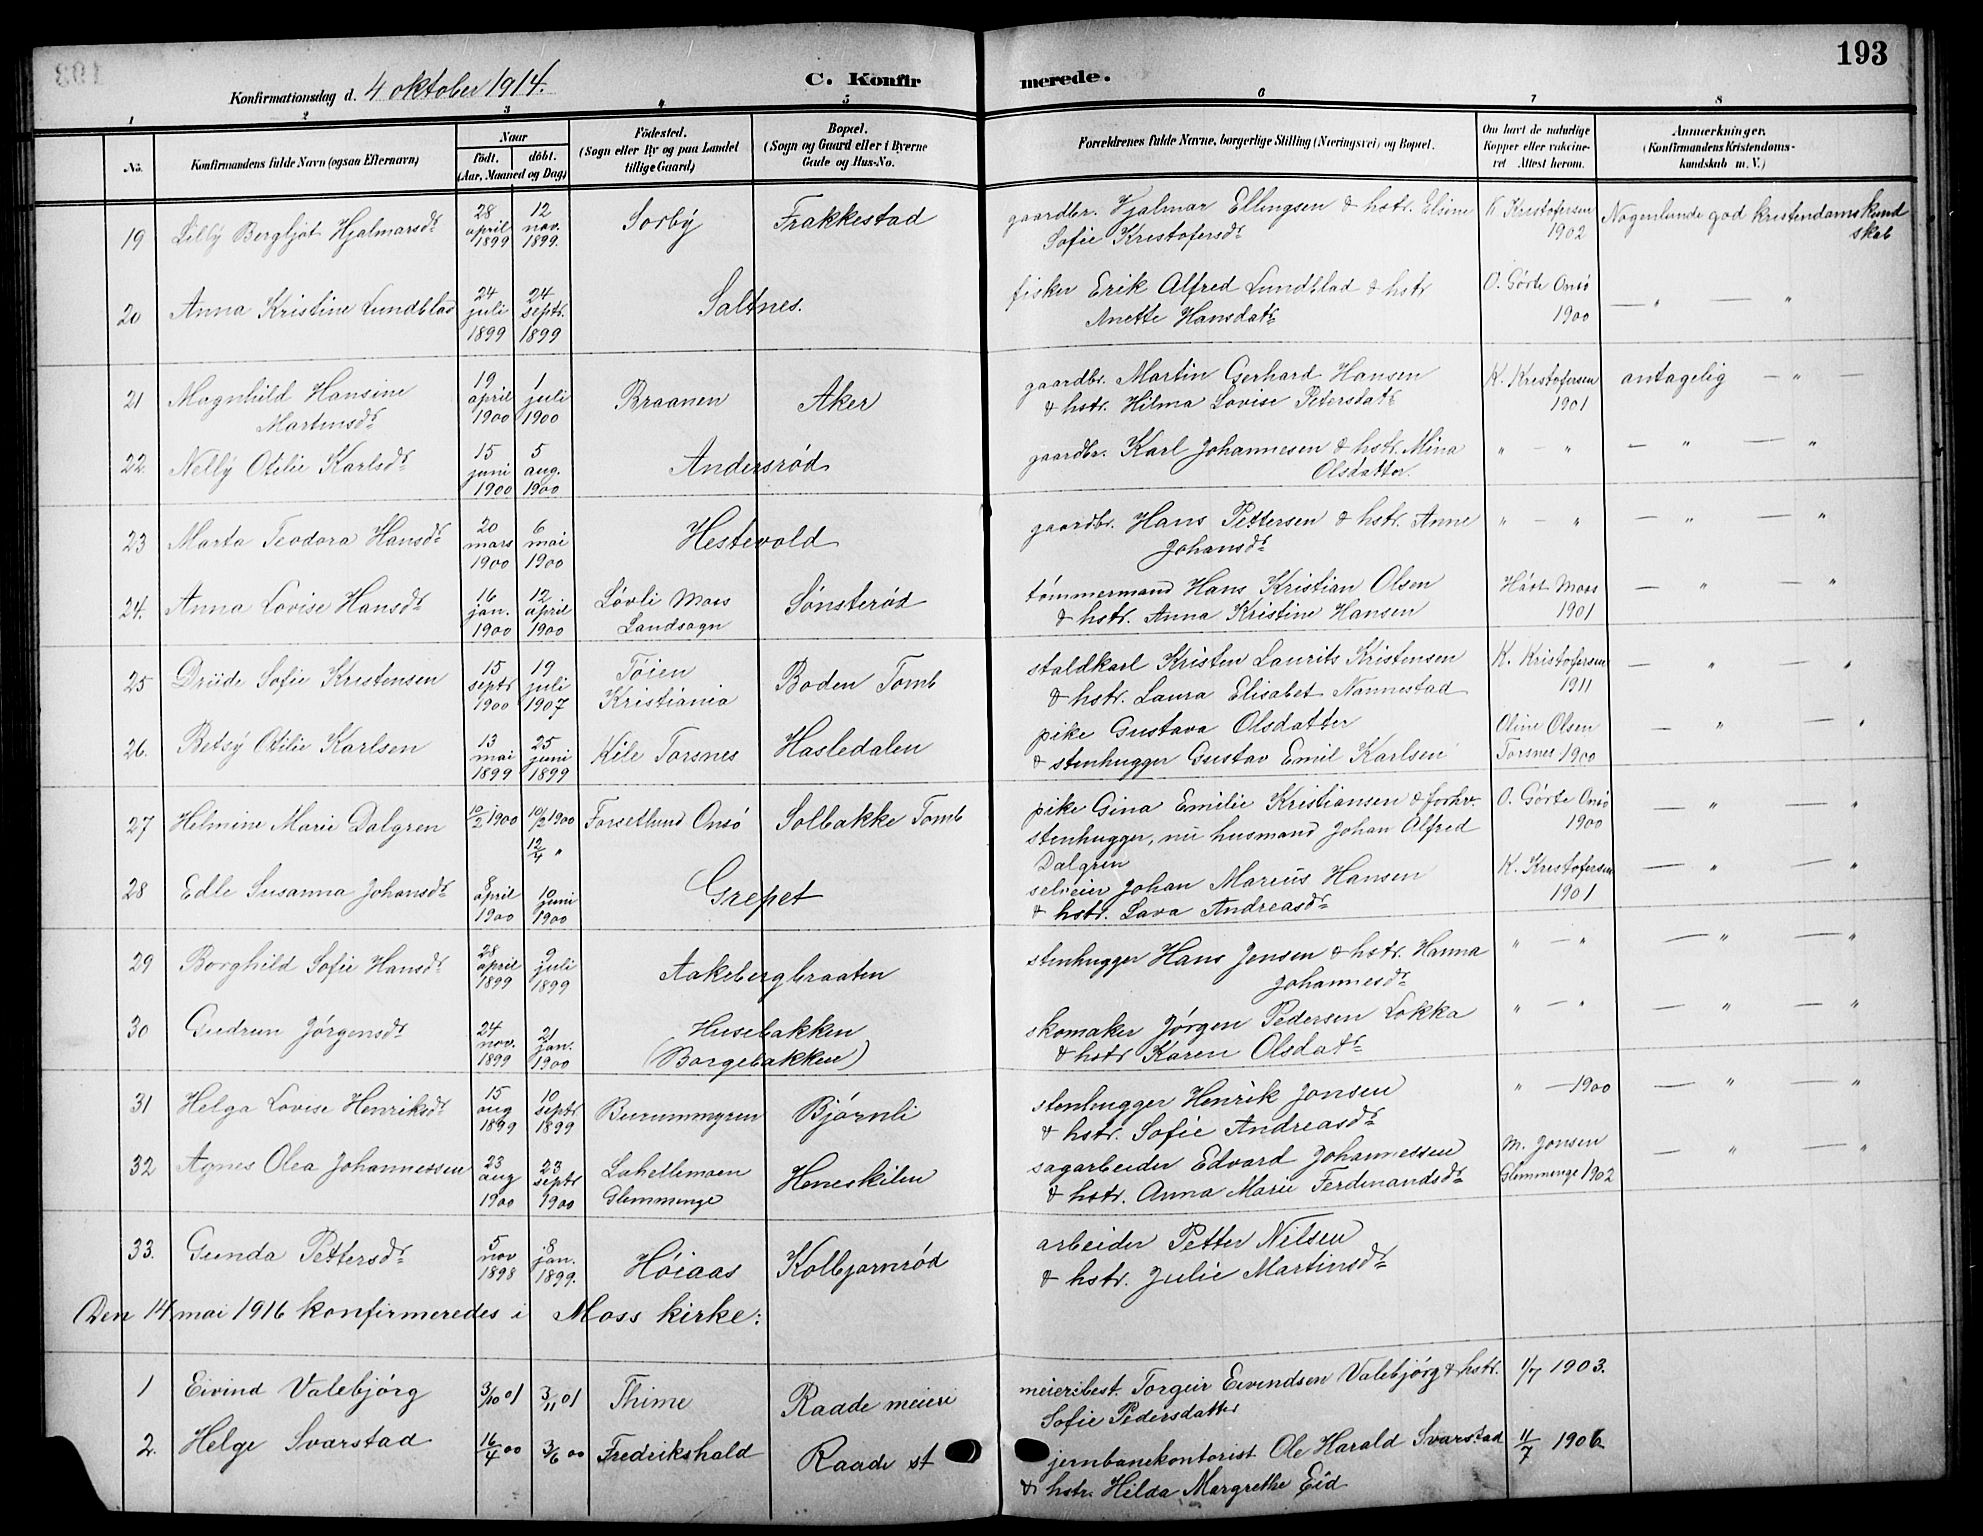 193
Konfirmationsdag d. 4 oktober 1914.
C. Konfirmerede.
1 2 3 4 5 6 7 8
No.
Konfirmandens fulde Navn (ogsaa Efternavn)
Naar
födt. döbt.
(Aar, Maaned og Dag)
Födested.
(Sogn eller By og paa Landet
tillige Gaard)
Bopæl.
(Sogn og Gaard eller i Byerne
Gade og Hus-No.
Forældrenes fulde Navne, borgerlige Stilling (Næringsvei) og Bopæl.
Om havt de naturlige
Kopper eller vakcine-
ret Attest herom.
Anmærkninger.
(Konfirmandens Kristendoms-
kundskab m. V.)
19 Lilly Bergljot Hjalmarsdr 28 april 1899 12 nov. 1899. Sorby Frakkestad gaardbr. Hjalmar Ellingsen & hstr. Elsine K Kristofersen Nogenlunde god kristendomskund
Sofie Kristofersdr 1902 skab
20 Anna Kristine Lundblad 24 juli 1899 24 septr. 1899 Saltnes. fisker Erik Alfred Lundblad & hstr O. Görte Onsö — " — "
Anette Hansdatr 1900
21 Magnhild Hansine 19 april 1900 1 juli 1900 Braanen Aker gaardbr. Martin Gerhard Hansen K. Kristofersen antagelig — " —
Martinsdr & hstr. Hilma Lovise Petersdatr 1901
22. Nelly Otilie Karlsdr 15 juni 1900 5 aug. 1900 Andersrød gaardbr. Karl Johannesen & hstr. Mina " — " — " — "
Olsdatter.
23 Marta Teodora Hansdr 20 mars 1900 6 mai 1900 Hestevold gaardbr. Hans Pettersen & hstr. Anne " — " — " — "
Johansdr
24. Anna Lovise Hansdr 16 jan. 1900 12 april 1900 Løvli Moss Sønsterød tømmermand Hans Kristian Olsen Moss — " — "
Landsogn & hstr. Anna Kristine Hansen 1901
25 Drude Sofie Kristensen 15 septr 1900 19 juli 1907 Tøien Boden Tomb staldkarl Kristen Laurits Kristensen K. Kristofersen — " — "
Kristiania & hstr. Laura Elisabet Nannestad 1911
26. Betsy Otilie Karlsen 13 mai 1899 25 juni 1899 Kile Torsnes Hasledalen pike Gustava Olsdatter Oline Olsen — " — "
& stenhugger Gustav Emil Karlsen Torsnes 1900
27 Helmine Marie Dalgren 10/2 1900 10/2 1900 Forsetlund Onsö Solbakke Tomb pike Gina Emilie Kristiansen & forhv. O. Görte Onsö — " — "
12/4 " stenhugger, nu husmand Johan Alfred 1900
Dalgren
28 Edle Susanna Johansdr 8 april 1900 10 juni 1900 Grepet selveier Johan Marius Hansen K. Kristofersen — " — "
& hstr. Lava Andreasdr 1901
29 Borghild Sofie Hansdr 28 april 1899 9 juli 1899 Aakebergbraaten stenhugger Hans Jensen & hstr. Hanna " — " — " — "
Johannesdr
30 Gudrun Jørgensdr 24 nov. 1899 21 jan. 1900 Husebakken skomaker Jørgen Pedersen Lokka " — " — " — "
(Borgebakken) & hstr Karen Olsdatr
31 Helga Lovise Henriksdr 15 aug 1899 10 septr 1899 Burummyren Bjørnli stenhugger Henrik Jonsen " — 1900 — " — "
& hstr. Sofie Andreasdr
32 Agnes Olea Johannessen 23 aug 1900 23 septr 1900 Lahellemoen Heneskilen sagarbeider Edvard Johannessen M. Jonsen — " — "
Glemminge & hstr. Anna Marie Ferdinandsdr Glemminge 1902
33. Gunda Pettersdr 5 nov 1898 8 jan. 1899. Høiaas Kolbjørnrød arbeider Petter Nilsen
& hstr. Julie Martinsdr
Den 14 mai 1916 konfirmeredes i Moss kirke:
1 Eivind Valebjørg 3/10 01 3/11 01 Thime Raade meieri meieribest. Torgeir Eivendsen Valebjørg & hstr. 1/7 1903.
Sofie Pedersdatter
2. Helge Svarstad 16/4 00 3/6 00 Fredrikshald Raade st jernbanekontorist Ole Harald Svarstad 11/7 1906
& hstr. Hilda Margrethe Eid